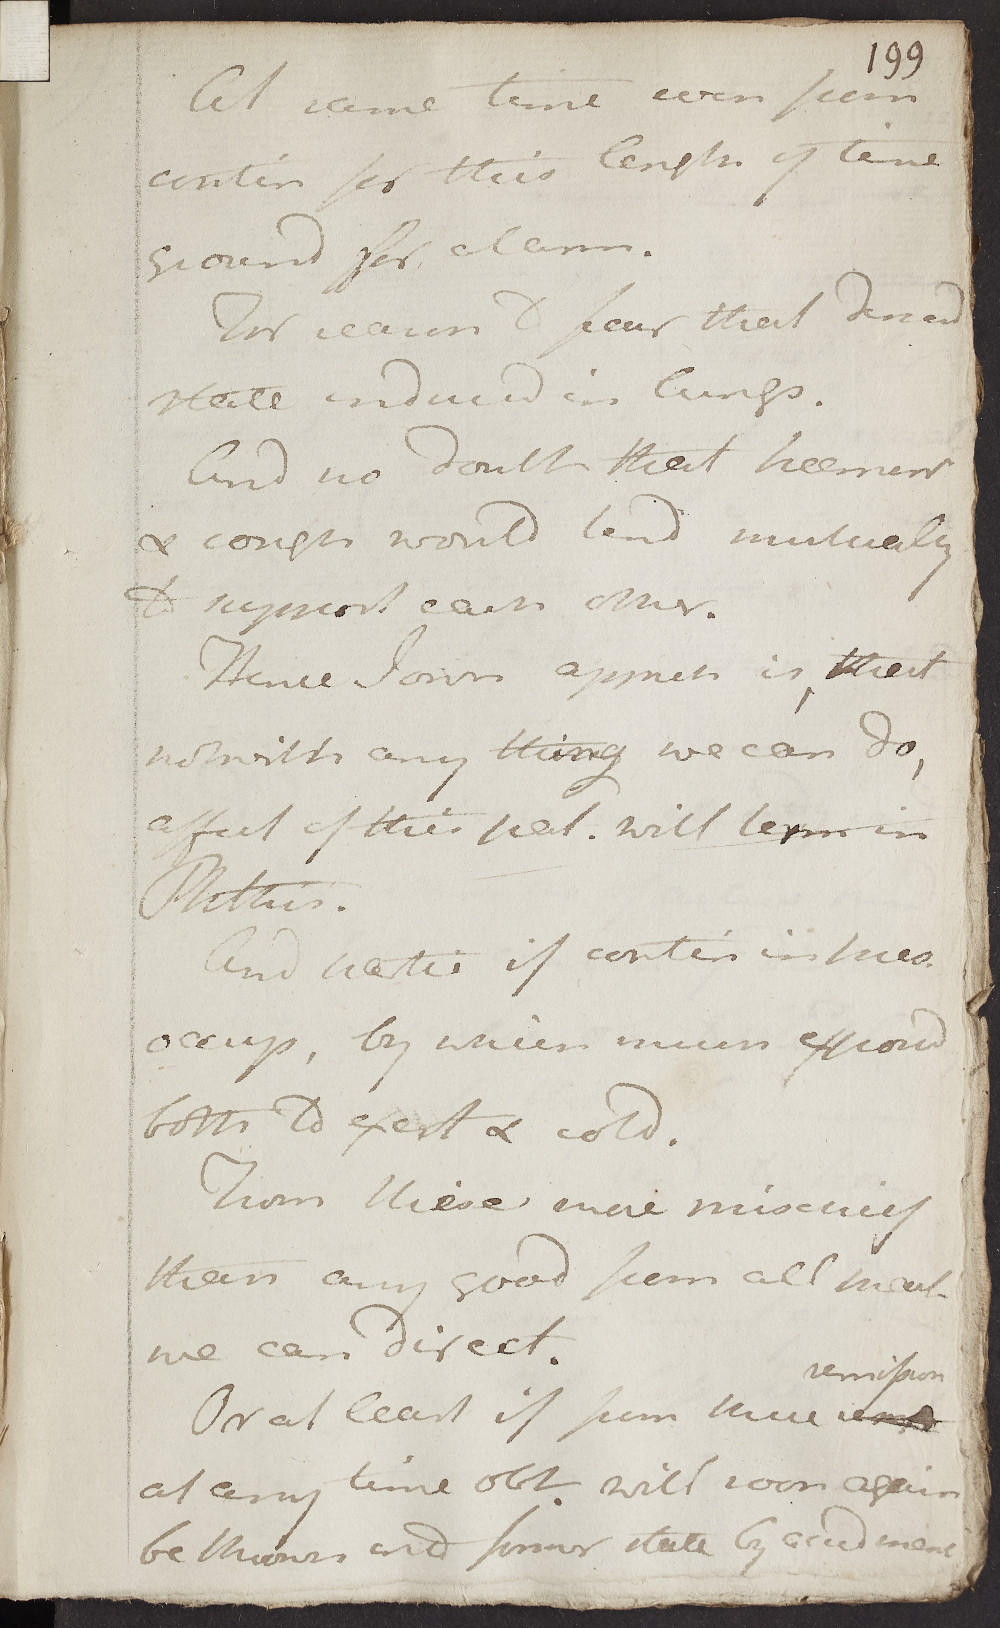 199
At same time even from
contin for this length of time
ground for alarm.
For reason to fear that diseasd
state induced in lungs.
And no doubt that haemorr
& cough would tend mutually
to support each other.
Hence I own appreh is, that
notwith any thing we can do,
affect of this pat. will term in
Phthisis.
And partic if contin in prec.
occup, by which much exposd
both to exert & cold.
From these more mischief
than any good from all meas.
we can direct.
remission
Or at least if from these
at any time obt. will soon again
be thrown into former state by